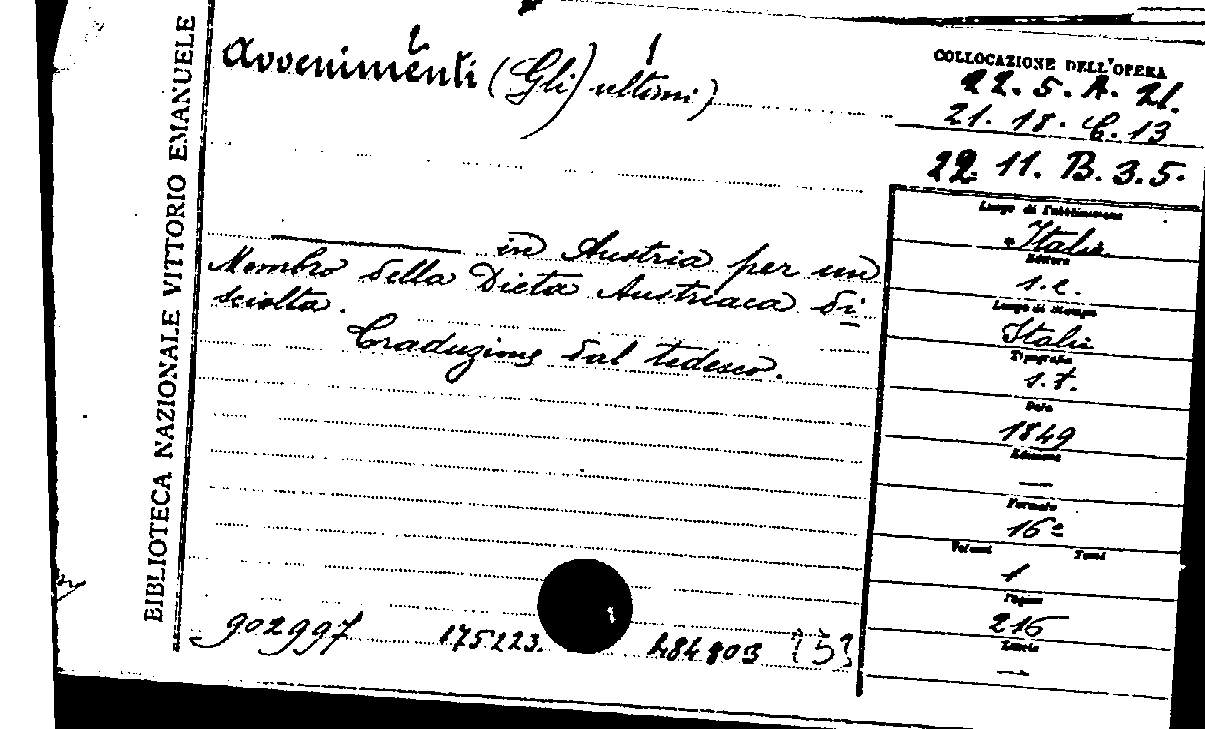 BIBLIOTECA NAZIONALE VITTORIO EMANUELE
2 1
Avvenimenti (Gli) ultimi)
in Austria per un
Membro della Dieta Austriaca di
sciolta.
Traduzione dal tedesco.
902997 175223. 484803 {5}
COLLOCAZIONE DELL'OPERA
22. 5. A. 21.
21. 18. C. 13
22. 11. B. 3.5.
Luogo di Pubblicazione
Italia
Editore
s.e.
Luogo di Stampa
Italia
Tipografia
s.t.
Data
1849
Edizione
—
Formato
16º
Volumi Tomi
1
Pagine
216
—